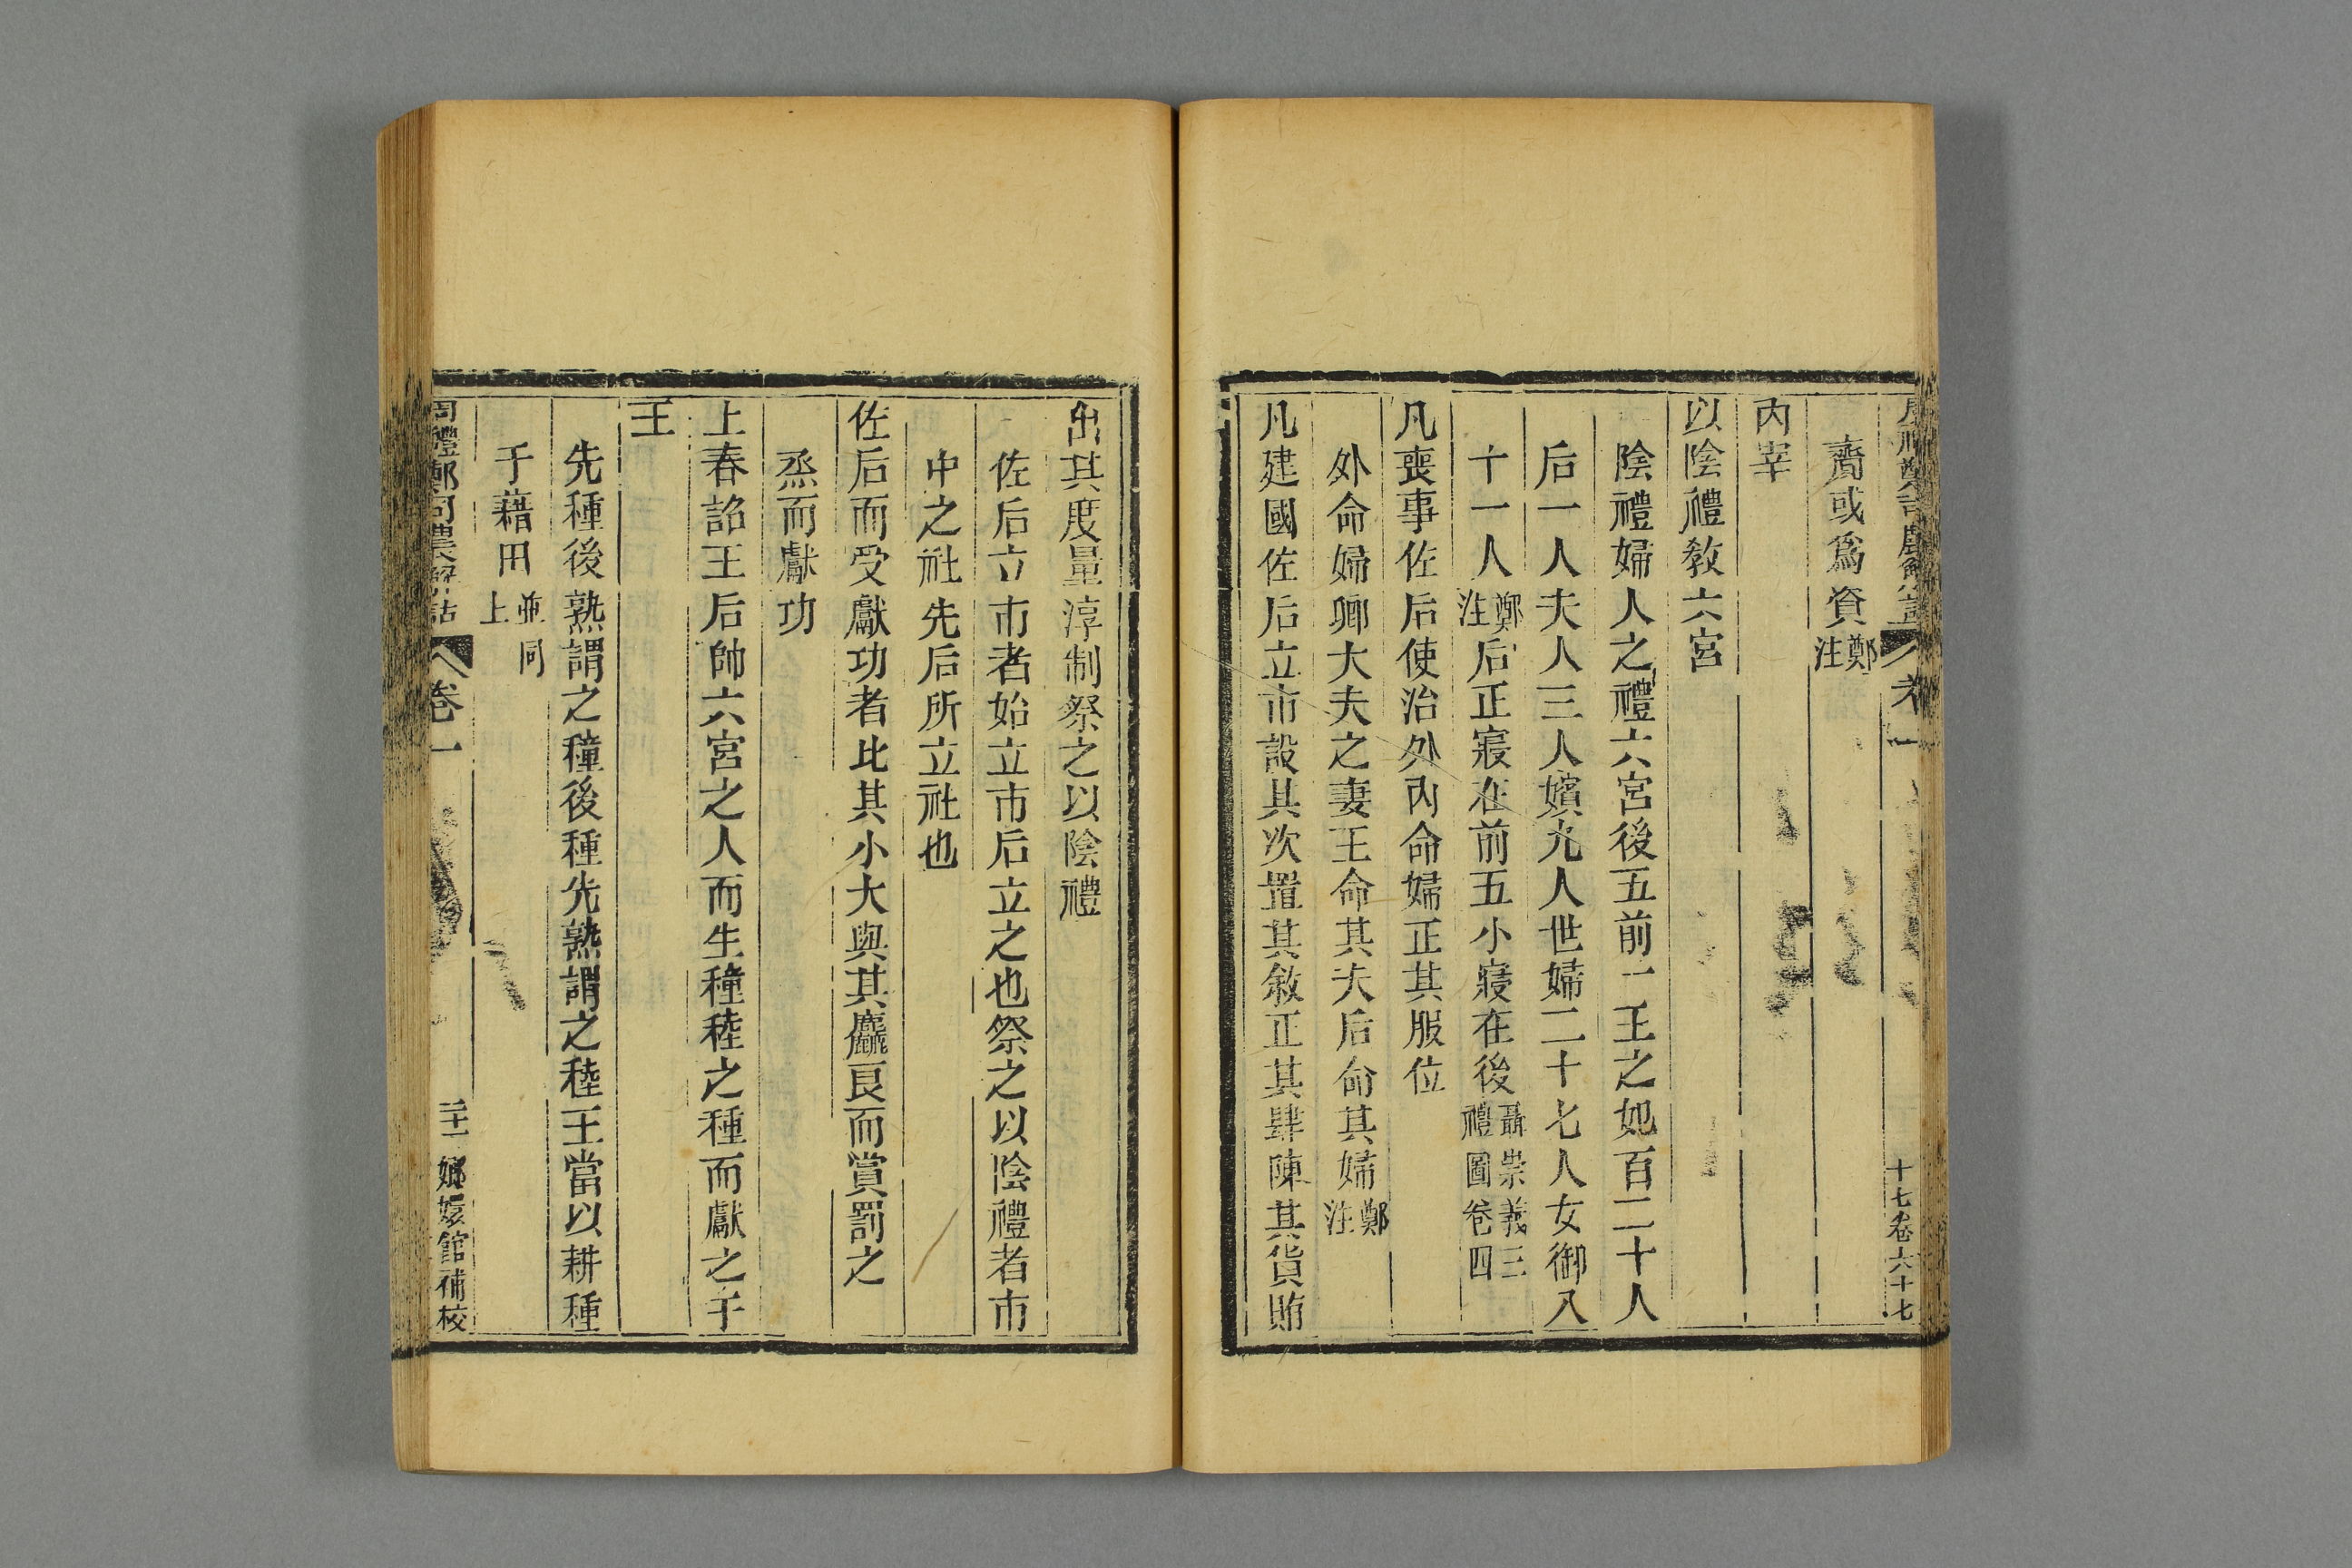 齎或爲資鄭注
內宰
以陰禮敎六宮
陰禮婦人之禮六宮後五前一王之妃百二十人
后一人夫人三人嬪九人世婦二十七人女御八
十一人鄭注后正寢在前五小寢在後聶崇義三禮圖卷四
凡喪事佐后使治外內命婦正其服位
外命婦卿大夫之妻王命其夫后命其婦鄭注
凡建國佐后立市設其次置其敘正其肆陳其貨賄
出其度量淳制祭之以陰禮
佐后立市者始立市后立之也祭之以陰禮者市
中之社先后所立社也
佐后而受獻功者比其小大與其麤良而賞罰之
烝而獻功
上春詔王后帥六宮之人而生穜稑之種而獻之于
王
先種後熟謂之穜後種先熟謂之稑王當以耕種
于藉田並同上
周禮鄭司農解詁 卷一 二十一 嫏嬛館補校
卷一
十七卷六十七